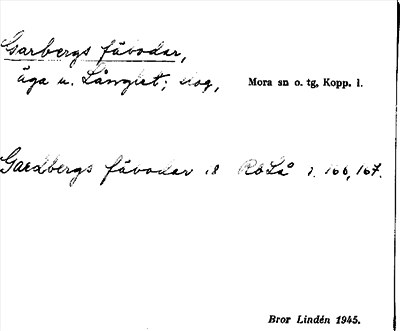 Garbergs fäbodar,
äga u. Långlet; skog, Mora sn o. tg, Kopp. l.
Gardbergs fäbodar 18 RåLå s. 166, 167.
Bror Lindén 1945.